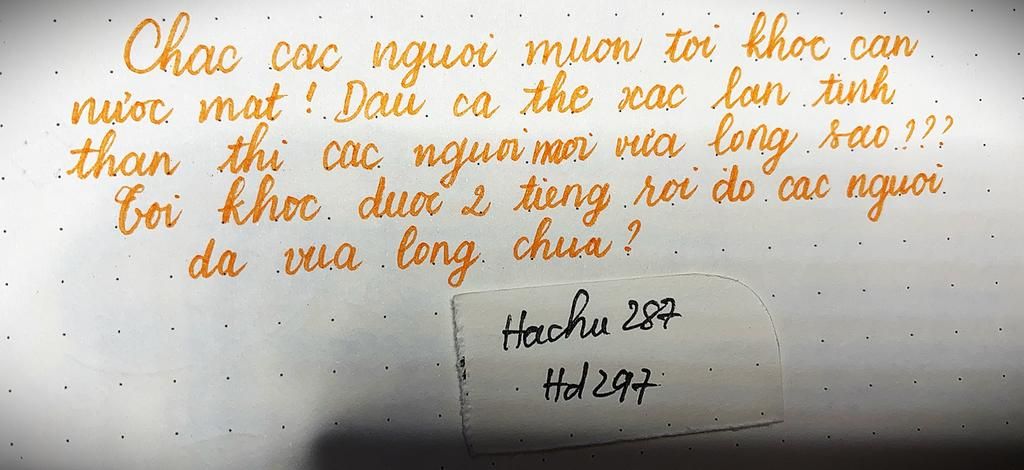 Chac cac nguoi muon toi khoc can
nước mat! Dau ca the xac lan tinh
than thi cac nguoi moi vừa long sao???
Toi khoc duoc 2 tieng roi do cac nguoi
da vua long chua?
Hachu 287
Hd 297